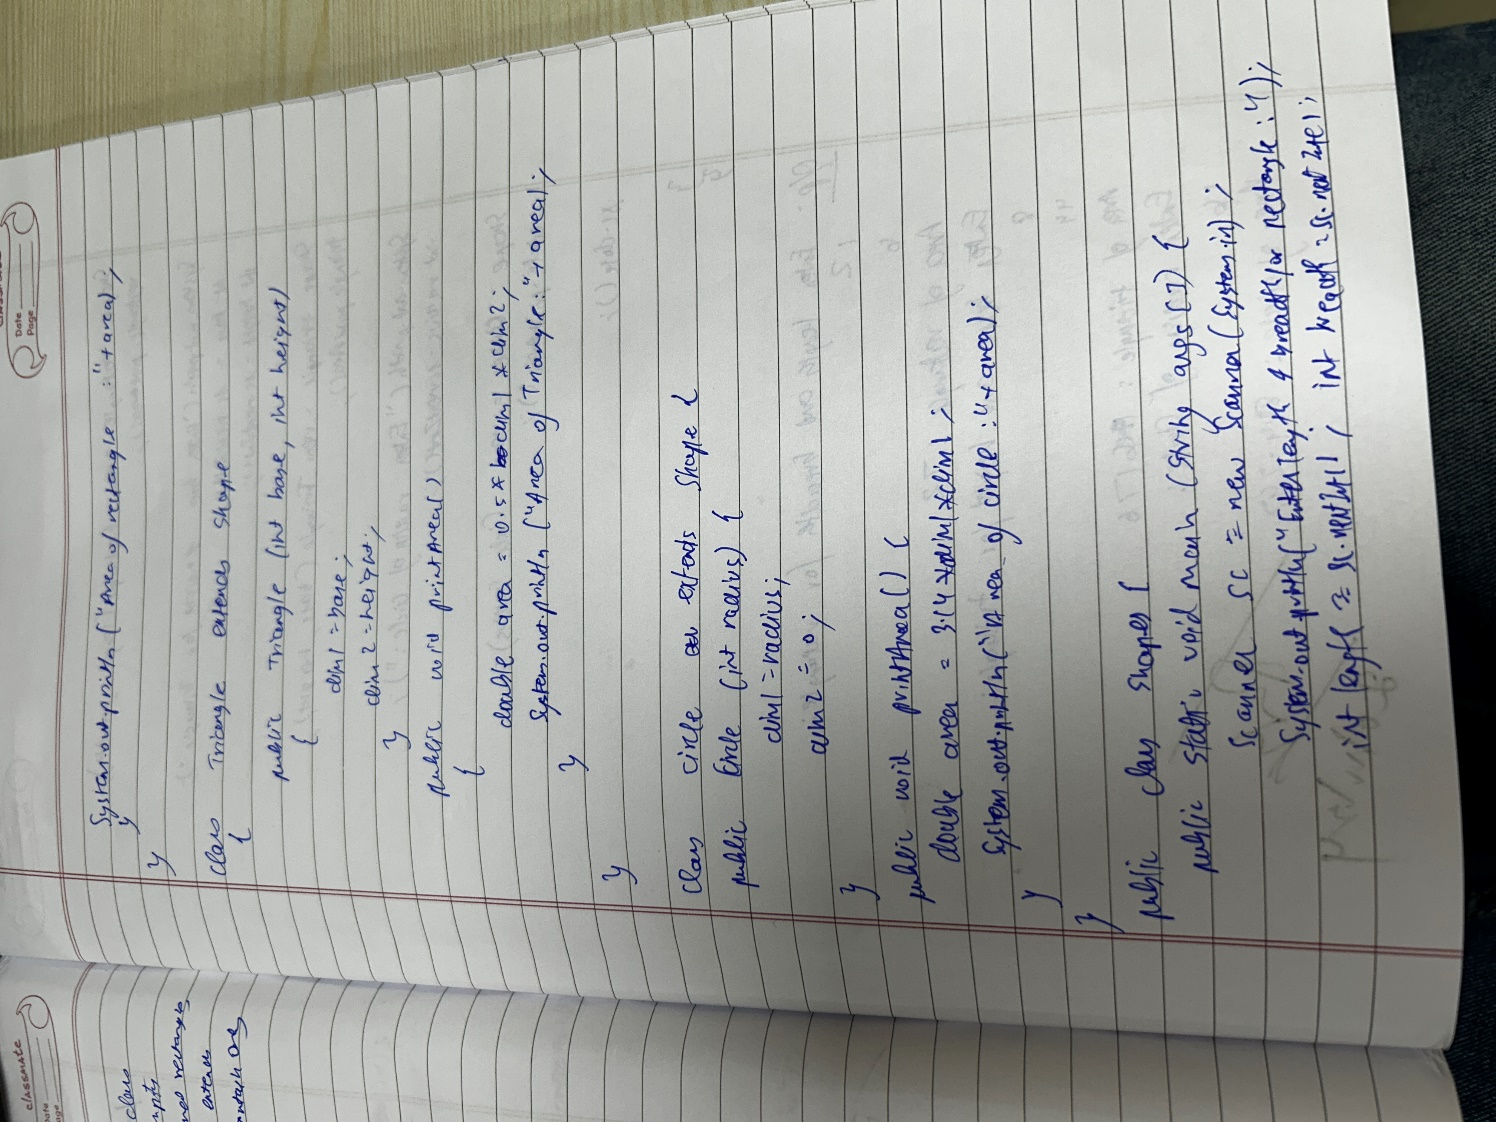 classmate
Date
Page
System.out.println ("Area of rectangle : "+area);
}
}
class Triangle extends Shape
{
public Triangle (int base, int height)
{
dim1 = base;
dim2 = height;
}
public void printArea()
{
double area = 0.5 * dim1 * dim2;
System.out.println ("Area of Triangle: "+area);
}
}
class circle extends Shape {
public Circle (int radius) {
dim1 = radius;
dim2 = 0;
}
public void printArea() {
double area = 3.14 * dim1 * dim1;
System.out.println ("Area of circle : "+area);
}
}
public class Shapes {
public static void main (String args[]) {
Scanner sc = new Scanner (System.in);
System.out.println ("Enter length & breadth for rectangle : ");
int length = sc.nextInt(); int breadth = sc.nextInt();
classmate
Date
Page
class
extends